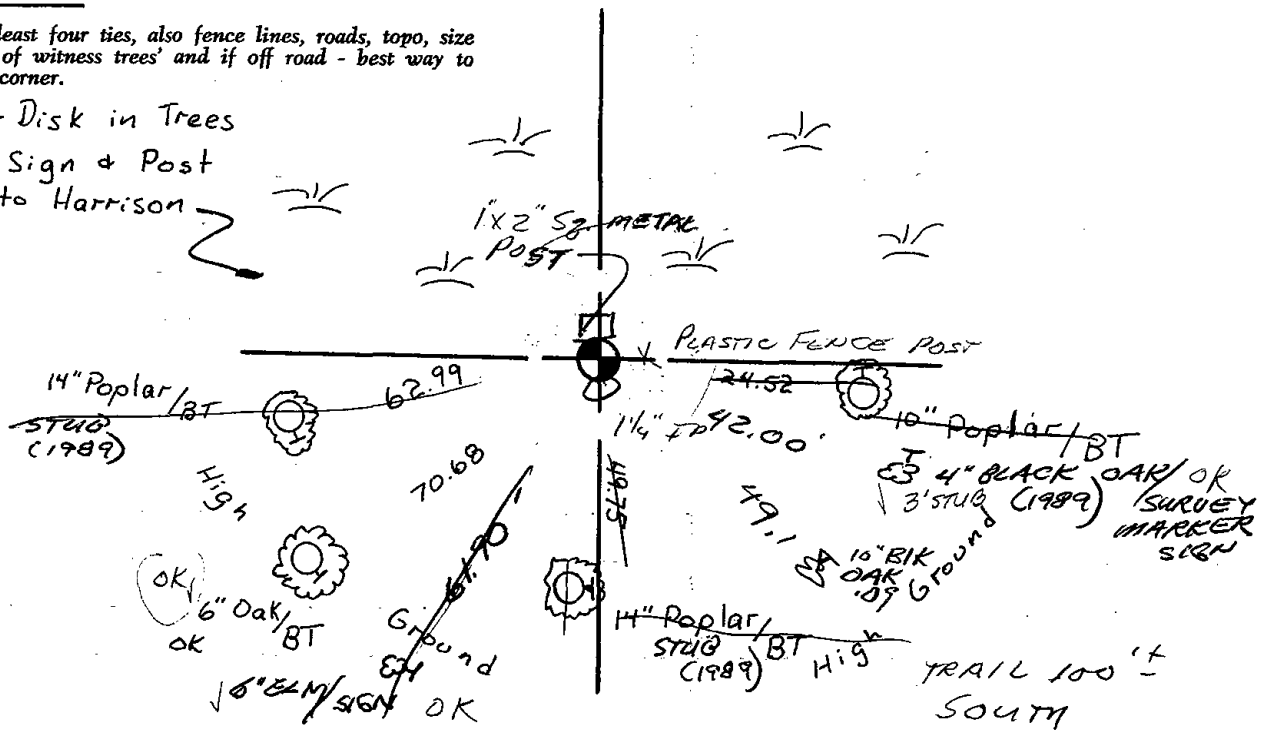 least four ties, also fence lines, roads, topo, size
of witness trees' and if off road - best way to
corner.
Disk in Trees
Sign & Post
to Harrison
1"x2" Sq. METAL
POST
PLASTIC FENCE POST
14" Poplar/BT
STUB
(1989)
62.99
24.52
1 1/4" IP
42.00'
10" Poplar/BT
4" BLACK OAK/ OK
3' STUB (1989) SURVEY
MARKER
SIGN
High
70.68
49.75
49.1
10" BlK
OAK
'09
Ground
OK
6" Oak/BT
OK
61.90
Ground
6" ELM/SIGN OK
14" Poplar/BT
STUB
(1989)
High
TRAIL 100'±
SOUTH